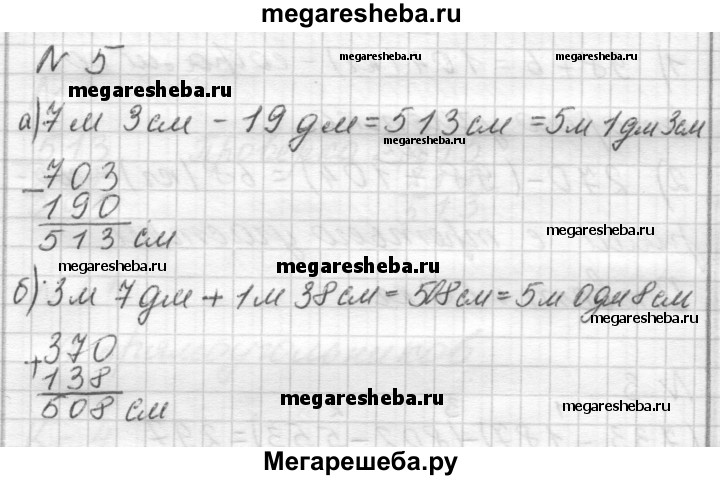 megaresheba.ru
N 5
megaresheba.ru
megaresheba.ru
а) 7 м 3 см - 19 дм = 513 см = 5 м 1 дм 3 см
megaresheba.ru
- 703
190
513 см
megaresheba.ru
megaresheba.ru
megaresheba.ru
б) 3 м 7 дм + 1 м 38 см = 508 см = 5 м 0 дм 8 см
megaresheba.ru
+ 370
138
508 см
megaresheba.ru
megaresheba.ru
Мегарешеба.ру